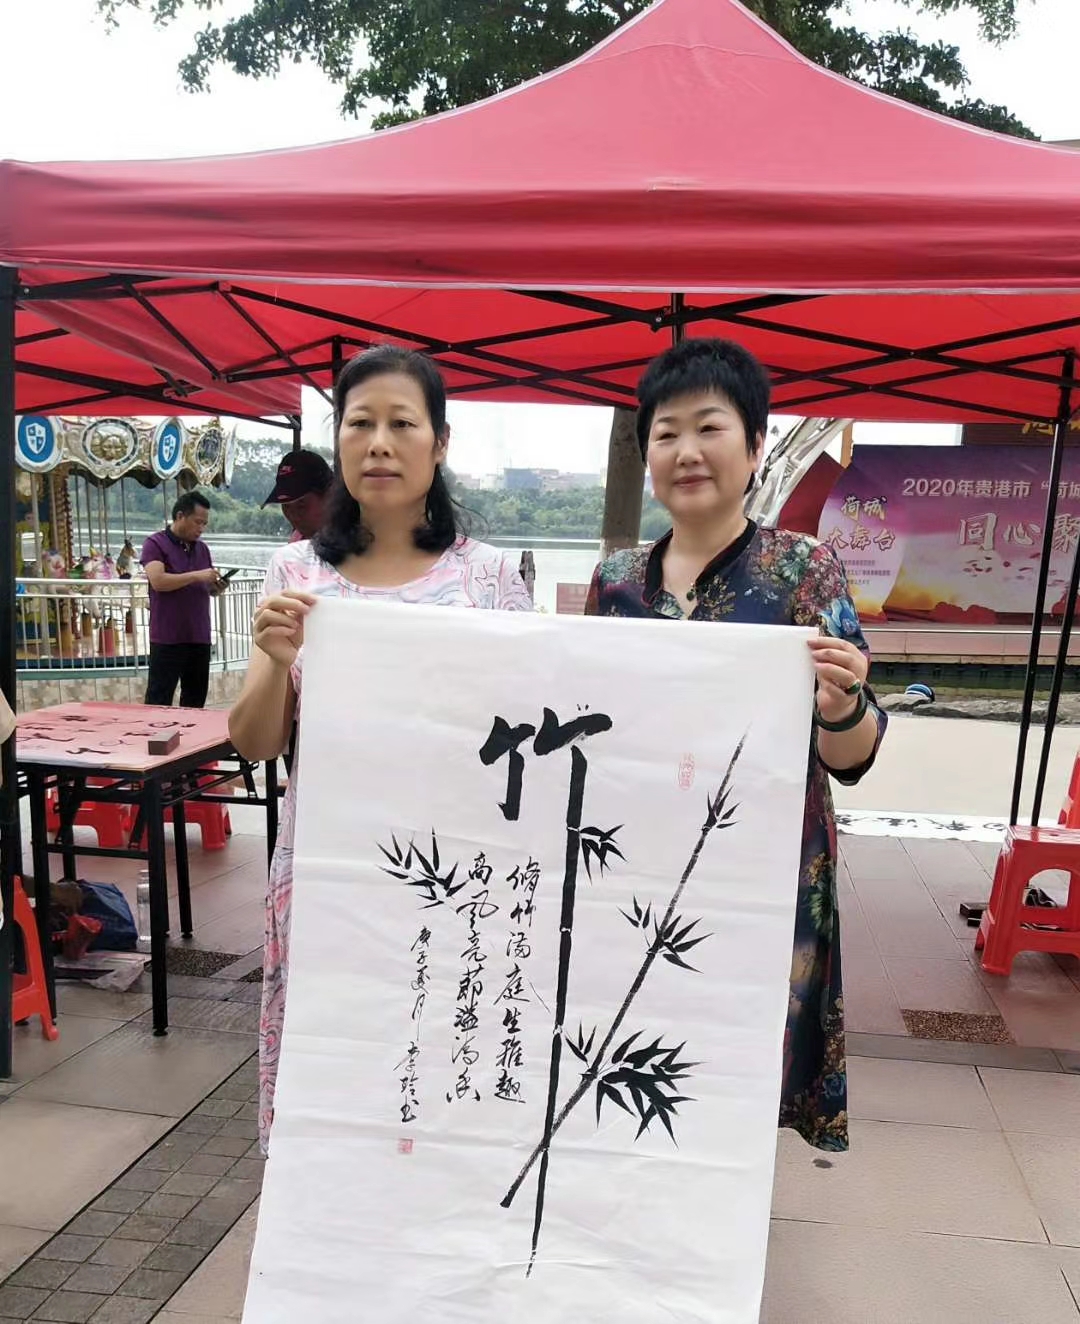 2020年贵港市“荷城
荷城
大舞台
同心聚
竹
脩竹满庭生雅趣
高风亮节溢清香
庚子夏月 李玲书